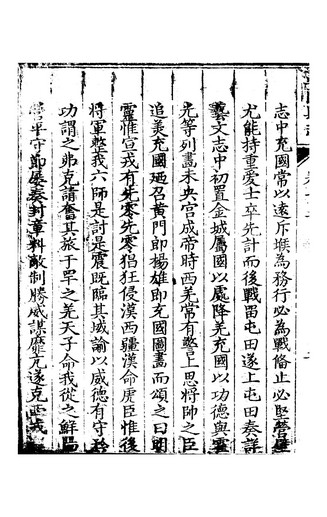 志中充國常以遠斥堠為務行必為戰備止必堅營壁
尤能持重愛士卒先計而後戰留屯田遂上屯田奏詳
藝文志中初置金城屬國以處降羌充國以功德與霍
光等列畫未央宮成帝時西羌常有警上思將帥之臣
追美充國廼召黃門郎楊雄即充國圖畫而頌之曰明
靈惟宣戎有先零先零猖狂侵漢西疆漢命虎臣惟後
將軍整我六師是討是震既臨其域諭以威德有守矜
功謂之弗克請奮其旅于罕之羌天子命我從之鮮陽
營平守節屢奏封章料敵制勝威謀靡亢遂克西戎